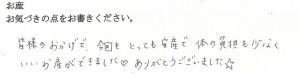 お産
お気づきの点をお書きください。
皆様のおかげで、今回も とっても安産で 体の負担も少なく
いいお産ができました♡ ありがとうございました☆